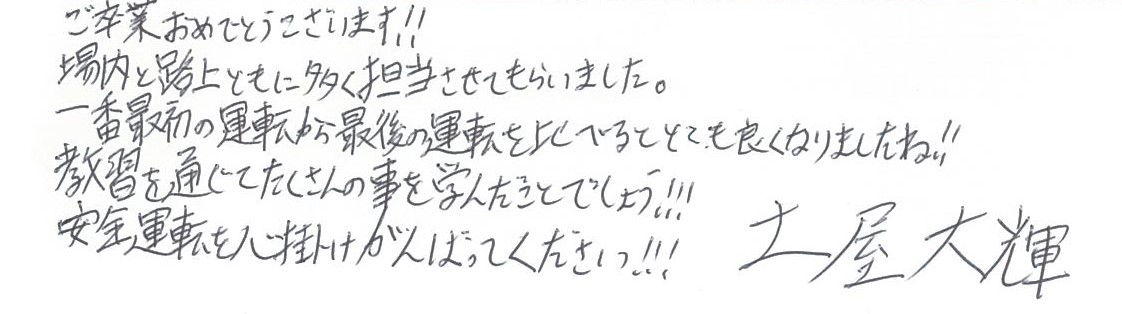 ご卒業おめでとうございます!!
場内と路上ともに多く担当させてもらいました。
一番最初の運転から最後の運転を比べるととても良くなりましたね!!
教習を通じてたくさんの事を学んだことでしょう!!!
安全運転を心掛けがんばってくださいっ!!!
土屋大輝